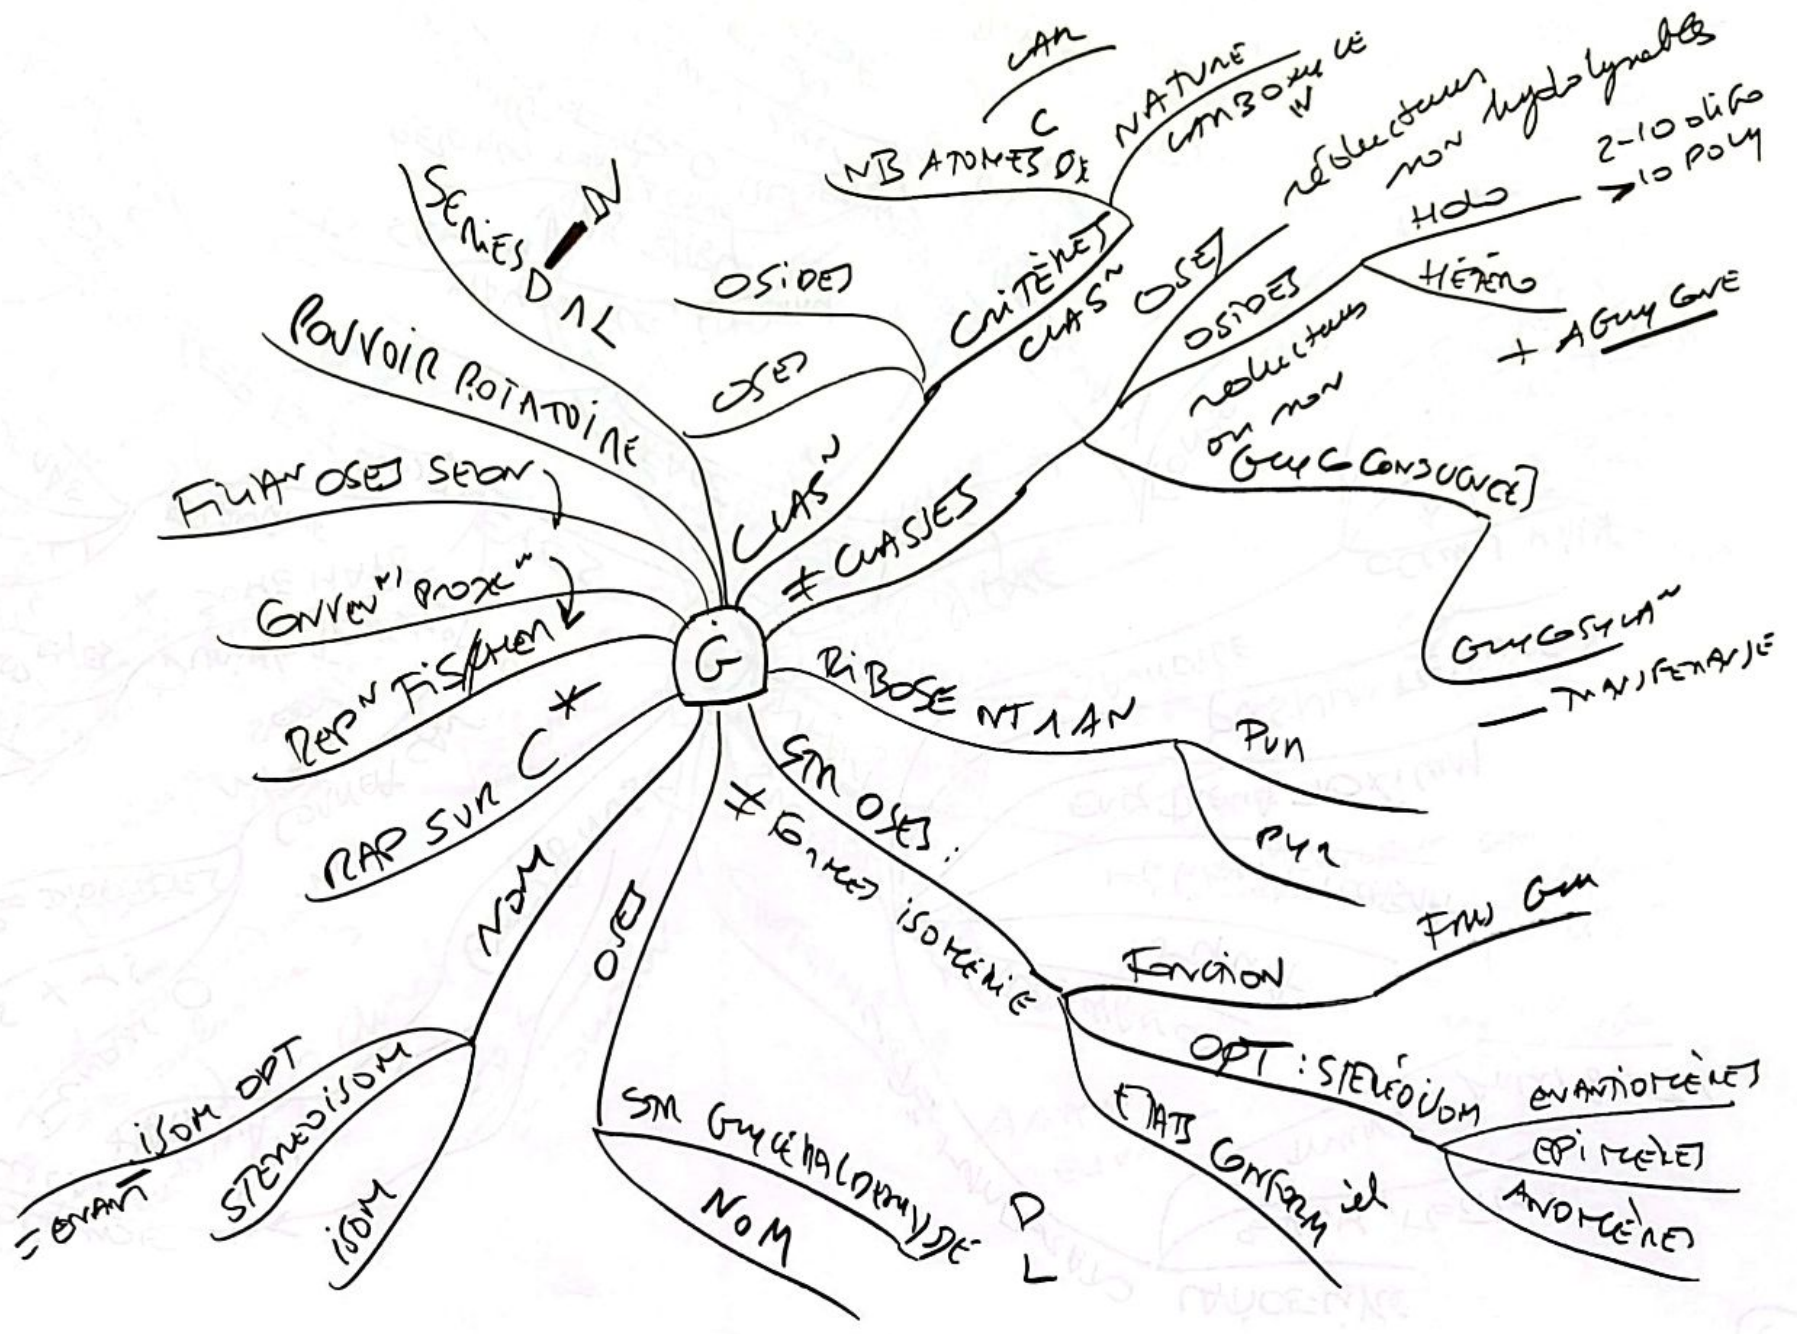 CAR
C
NB ATOMES DE
NATURE
CARBONYLE
CRITÈRES
CLAS~
OSIDES
OSES
CLAS~
OSES
réducteurs
non hydrolysables
OSIDES
réducteurs
ou non
HOLO
2-10 oligo
>10 POLY
HÉTÉRO
+ AGLYCONE
≠ CLASSES
GLYCOCONJUGUÉS
GLYCOSYLA~
TRANSFERASE
RIBOSE NT 1 AN
PUR
PYR
STR OSES :
≠ FORMES ISOMÉRIE
FONCTION
FRU GLU
OPT : STÉRÉOISOM
ENANTIOMÈRES
EPIMÈRES
ANOMÈRES
ETATS CONFORM iel
OSES
STR GLYCERALDEHYDE
D
L
NOM
NOM
ISOM OPT
= ENANT
STEREOISOM
ISOM
RAP SUR C *
REP~ FISCHER
CONVEN~ PROJC~
FILIA~ OSES SELON
POUVOIR ROTATOIRE
SERIES
D N L
N
G